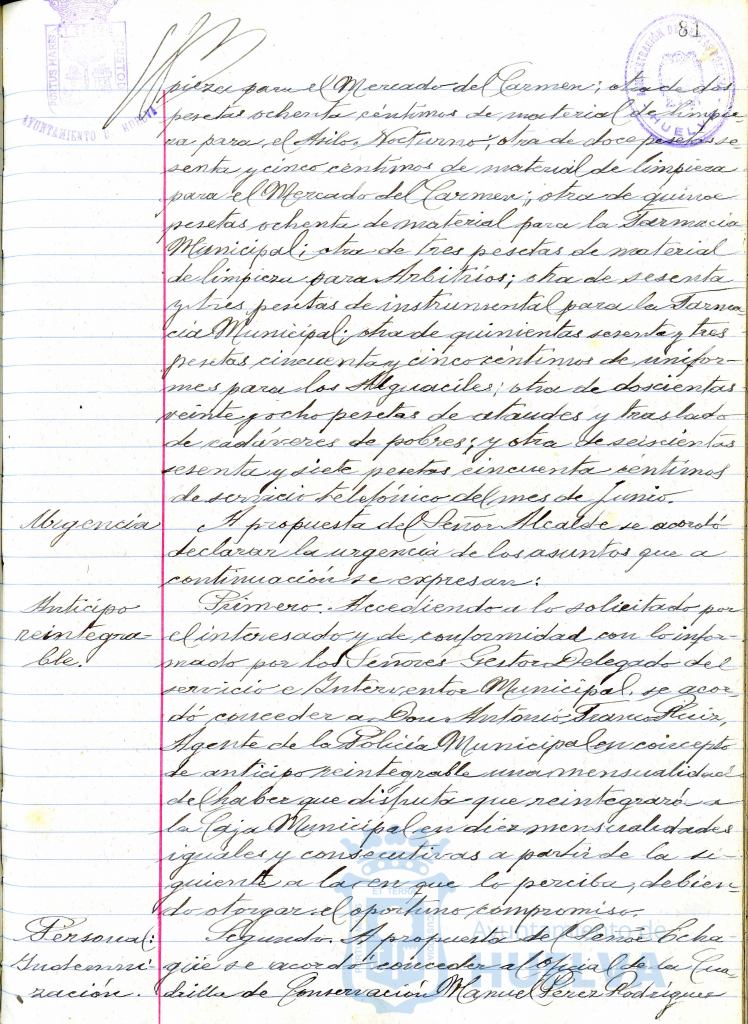 81
PORTUS MARIS
CUSTOD
AYUNTAMIENTO D HUELVA
HUELVA
pieza para el Mercado del Carmen; otra de dos
pesetas ochenta céntimos de material de limpie-
za para el Asilo Nocturno; otra de doce pesetas se-
senta y cinco céntimos de material de limpieza
para el Mercado del Carmen; otra de quince
pesetas ochenta de material para la Farmacia
Municipal; otra de tres pesetas de material
de limpieza para Arbitrios; otra de sesenta
y tres pesetas de instrumental para la Farma-
cia Municipal; otra de quinientas sesenta y tres
pesetas cincuenta y cinco céntimos de unifor-
mes para los Alguaciles; otra de doscientas
veinte y ocho pesetas de ataudes y traslado
de cadáveres de pobres; y otra de seiscientas
sesenta y siete pesetas cincuenta céntimos
de servicio telefónico del mes de Junio.
Urgencia
A propuesta del Señor Alcalde se acordó
declarar la urgencia de los asuntos que a
continuación se expresan:
Anticipo
reintegra-
ble.
Primero. Accediendo a lo solicitado por
el interesado y de conformidad con lo infor-
mado por los Señores Gestor Delegado del
servicio e Interventor Municipal, se acor-
dó conceder a Don Antonio Franco Ruiz,
Agente de la Policía Municipal en concepto
de anticipo reintegrable una mensualidad
del haber que disfruta que reintegrará a
la Caja Municipal en diez mensualidades
iguales y consecutivas a partir de la si-
guiente a la en que lo perciba, debien-
do otorgar el oportuno compromiso.
Personal:
Indemni-
zación.
Segundo. A propuesta del Señor Echa-
güe se acordó conceder al Oficial de la Cua-
drilla de Conservación Manuel Pérez Rodríguez
Ayuntamiento de
HUELVA